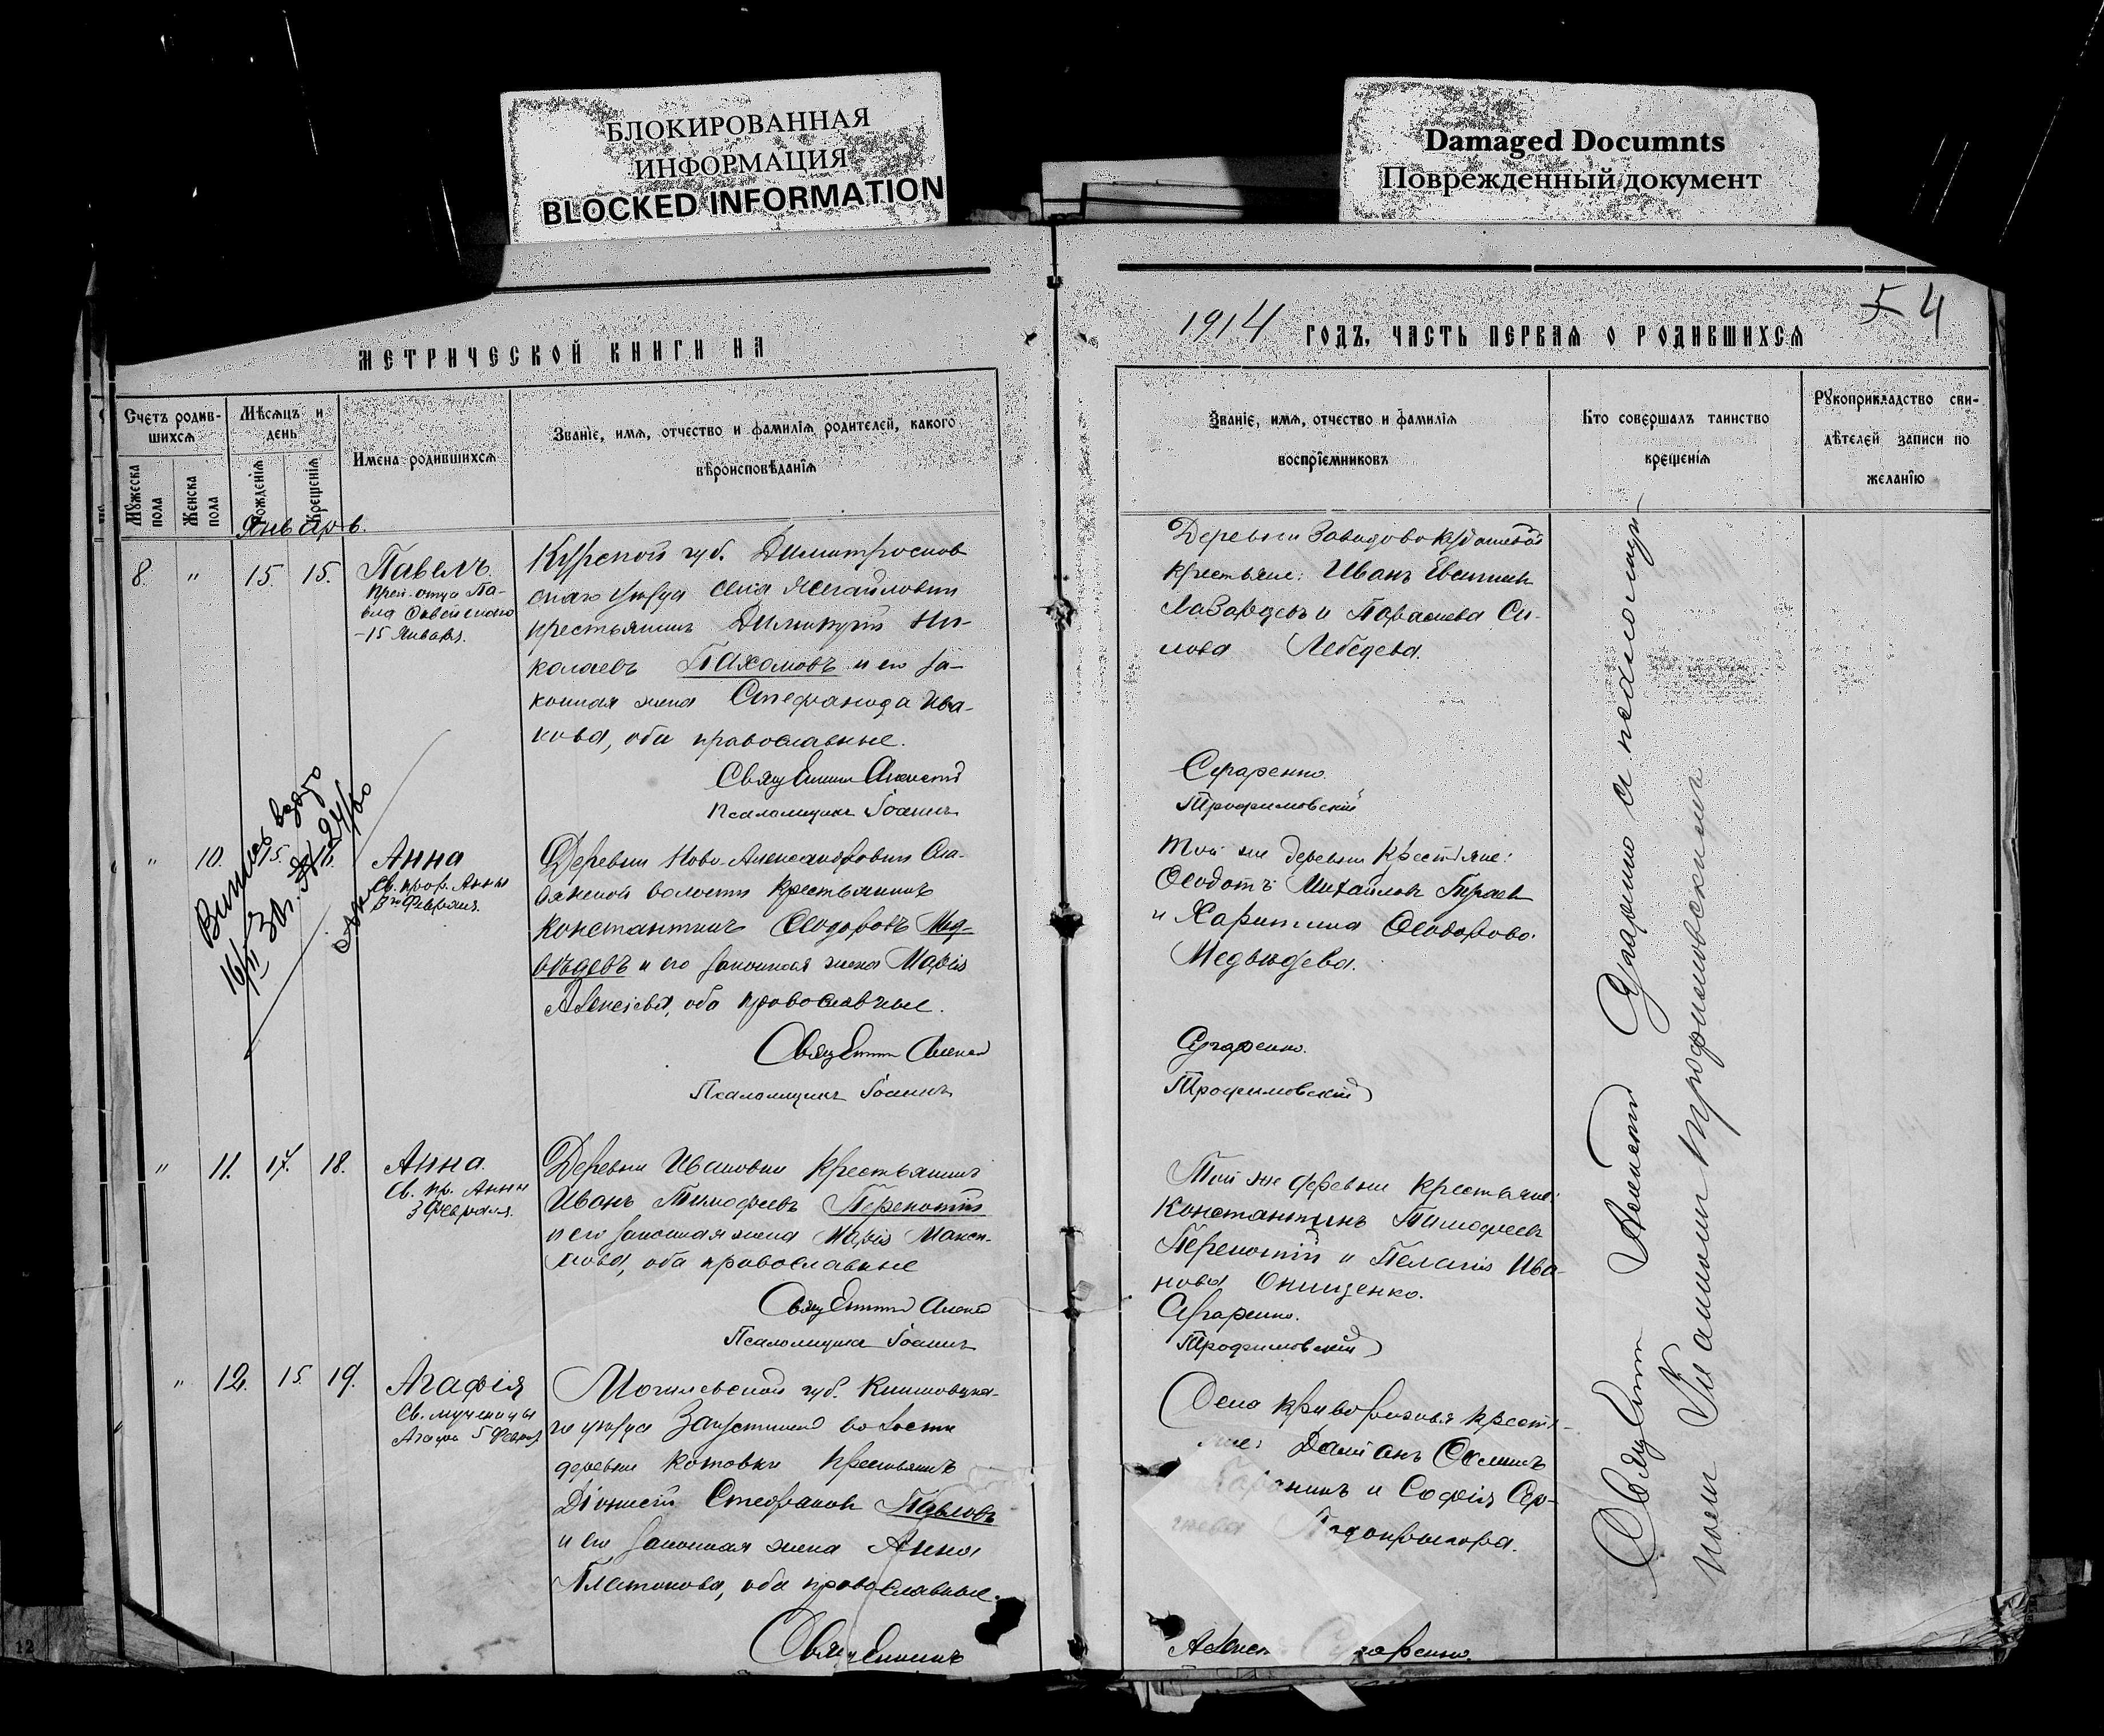 БЛОКИРОВАННАЯ
ИНФОРМАЦИЯ
BLOCKED INFORMATION
Damaged Documnts
Поврежденный документ
5 4
МЕТРИЧЕСКОЙ КНИГИ НА
1914 ГОДЪ, ЧАСТЬ ПЕРВАЯ О РОДИВШИХСЯ
Счетъ родив-
шихся
Мѣсяцъ и
день
Мужеска
пола
Женска
пола
Рожденія
Крещенія
Имена родившихся
Званіе, имя, отчество и фамилія родителей, какого
вѣроисповѣданія
Званіе, имя, отчество и фамилія
воспріемниковъ
Кто совершалъ таинство
крещенія
Рукоприкладство сви-
дѣтелей записи по
желанію
Январь.
8. " 15. 15. Павелъ
преп. отца Па-
вла
15 Января.
Курской губ. Димитровск
скаго уѣзда села
крестьянинъ Димитрій Ни-
колаевъ Пахомовъ и его за-
конная жена Стефанида Ива-
нова, оба православные.
Священникъ Алексій
Псаломщикъ Іоаннъ
Деревни
крестьяне: Иванъ
Лазаревъ и Параскева Си-
лова Лебедева.
Сугаренко.
Трофимовскій
" 10. 15. Анна
Св. прор. Анны
3го Февраля.
Выписъ
16/II 30г. 24/60
Деревни Ново-Александровки Сла-
волости крестьянинъ
Константинъ Ѳеодоровъ Мед-
вѣдевъ и его законная жена Марія
Алексіева, оба православные.
Священникъ Алексій
Псаломщикъ Іоаннъ
Той же деревни крестьяне:
Ѳеодотъ Михайловъ
и Харитина Ѳеодорова
Медвѣдева.
Сугаренко.
Трофимовскій
" 11. 17. 18. Анна.
Св. пр. Анны
3 Февраля.
Деревни Ивановки крестьянинъ
Иванъ Тимофеевъ Перекотій
и его законная жена Марія Макси-
мова, оба православные
Священникъ Алексій
Псаломщикъ Іоаннъ
Той же деревни крестьяне:
Константинъ Тимофеевъ
Перекотій и Пелагія Ива-
нова Онищенко.
Сугаренко.
Трофимовскій
" 12. 15. 19. Агафія
Св. мученицы
Агафіи 5 Феврал.
Могилевской губ.
го уѣзда волости
деревни Котовки крестьянинъ
Діонисій Стефановъ Павловъ
и его законная жена Анна
Платонова, оба православные.
Священникъ
Села крестья-
не: Даміанъ
и Софія Сер-
Алексій Сугаренко.
Священникъ Алексій Сугаренко с псаломщи-
комъ Іоанномъ Трофимовскимъ